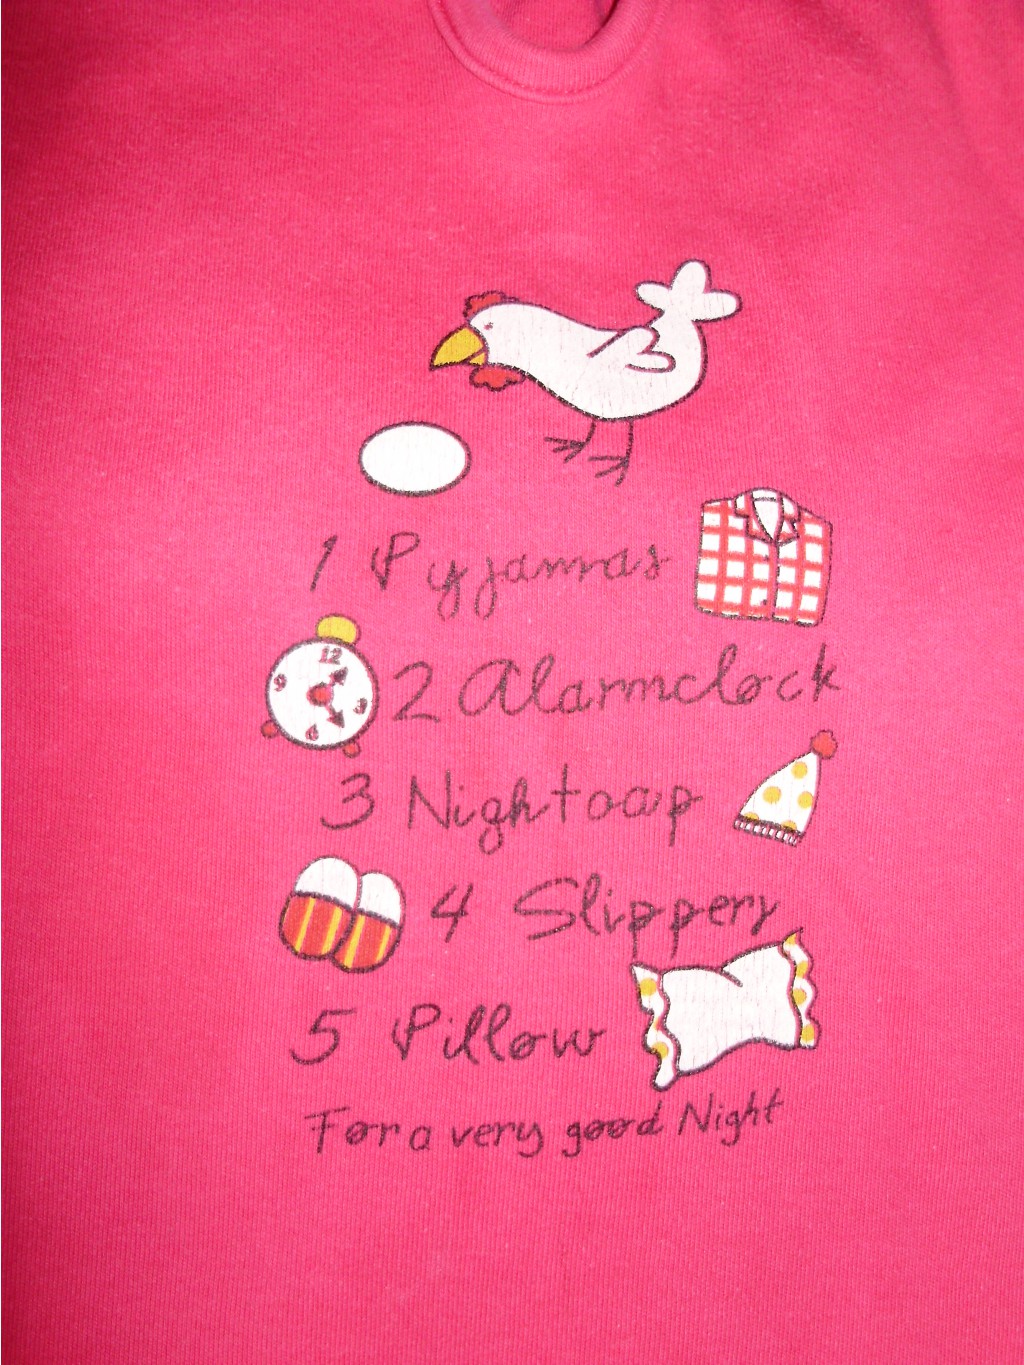 1 Pyjamas
12
9 3
6
2 Alarmclock
3 Nightcap
4 Slippery
5 Pillow
For a very good Night